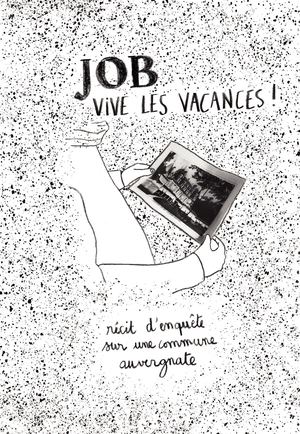 JOB
ViVE LES VACANCES !
récit d'enquête
sur une commune
auvergnate